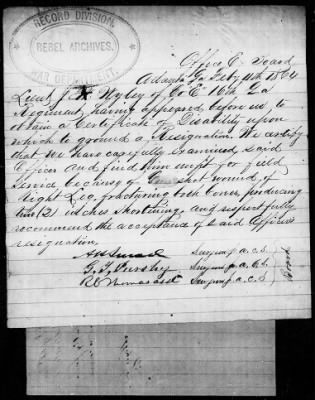 RECORD DIVISION
REBEL ARCHIVES.
WAR DEPARTMENT.
Office Ex Board
Atlanta Ga Feby 11th 1864
Lieut J. Wyley of Co E 16th La
Regiment, having appeared before us, to
obtain a Certificate of Disability upon
which to ground a Resignation. We certify
that We have carefully Examined said
Officer and find him unfit for field
Service because of Gun shot wound, of
Right Leg, fracturing both bones, producing
two (2) inches shortening, and respectfully
recommend the acceptance of said Officers
resignation.
Surgeon P. A. C. S.
G. T. Pursley Surgeon P. A. C. S.
Surgeon P. A. C. S.
Board